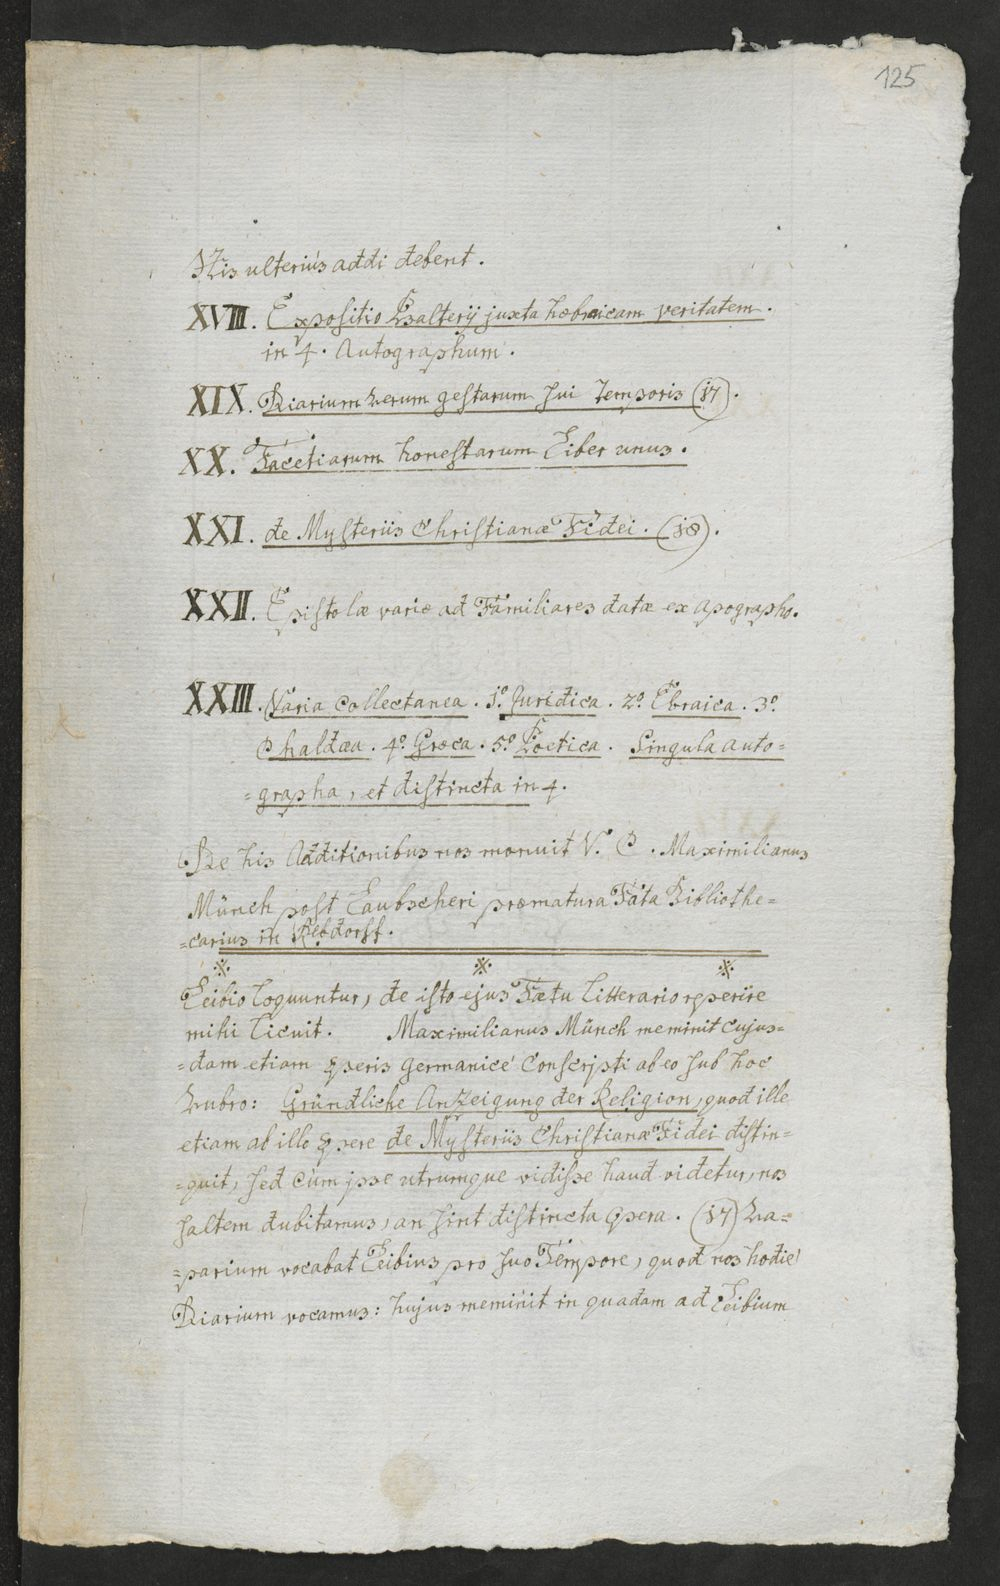 125
His ulterius addi debent.
XVIII. Expositio Psalterij juxta hebraicam veritatem.
in 4. Autographum.
XIX. Diarium rerum gestarum sui Temporis (17).
XX. Facetiarum honestarum Liber unus.
XXI. de Mysteriis Christianæ Fidei. (18).
XXII. Epistolæ variæ ad Familiares datæ ex apographo.
XXIII. Varia Collectanea. 1º Juridica. 2º. Ebraica. 3º.
Chaldæa. 4º. Græca. 5º. Poetica. Singula auto=
=grapha, et distincta in 4.
De his Additionibus nos monuit V. P. Maximilianus
Münch post Laubscheri præmatura Fata Bibliothe=
=carius in Rebdorff.
Leibio loquuntur, de isto ejus Fœtu Litterario reperire
mihi licuit. Maximilianus Münch meminit cujus=
=dam etiam operis germanicè conscripti ab eo sub hoc
Rubro: Gründliche Anzeigung der Religion, quod ille
etiam ab illo opere de Mysteriis Christianæ Fidei distin=
=guit, sed cum ipse utrumque vidisse haud videtur, nos
saltem dubitamus, an sint distincta opera. (17) Ra=
=parium vocabat Leibius pro suo Tempore, quod nos hodie
Diarium vocamus: hujus meminit in quadam ad Leibium